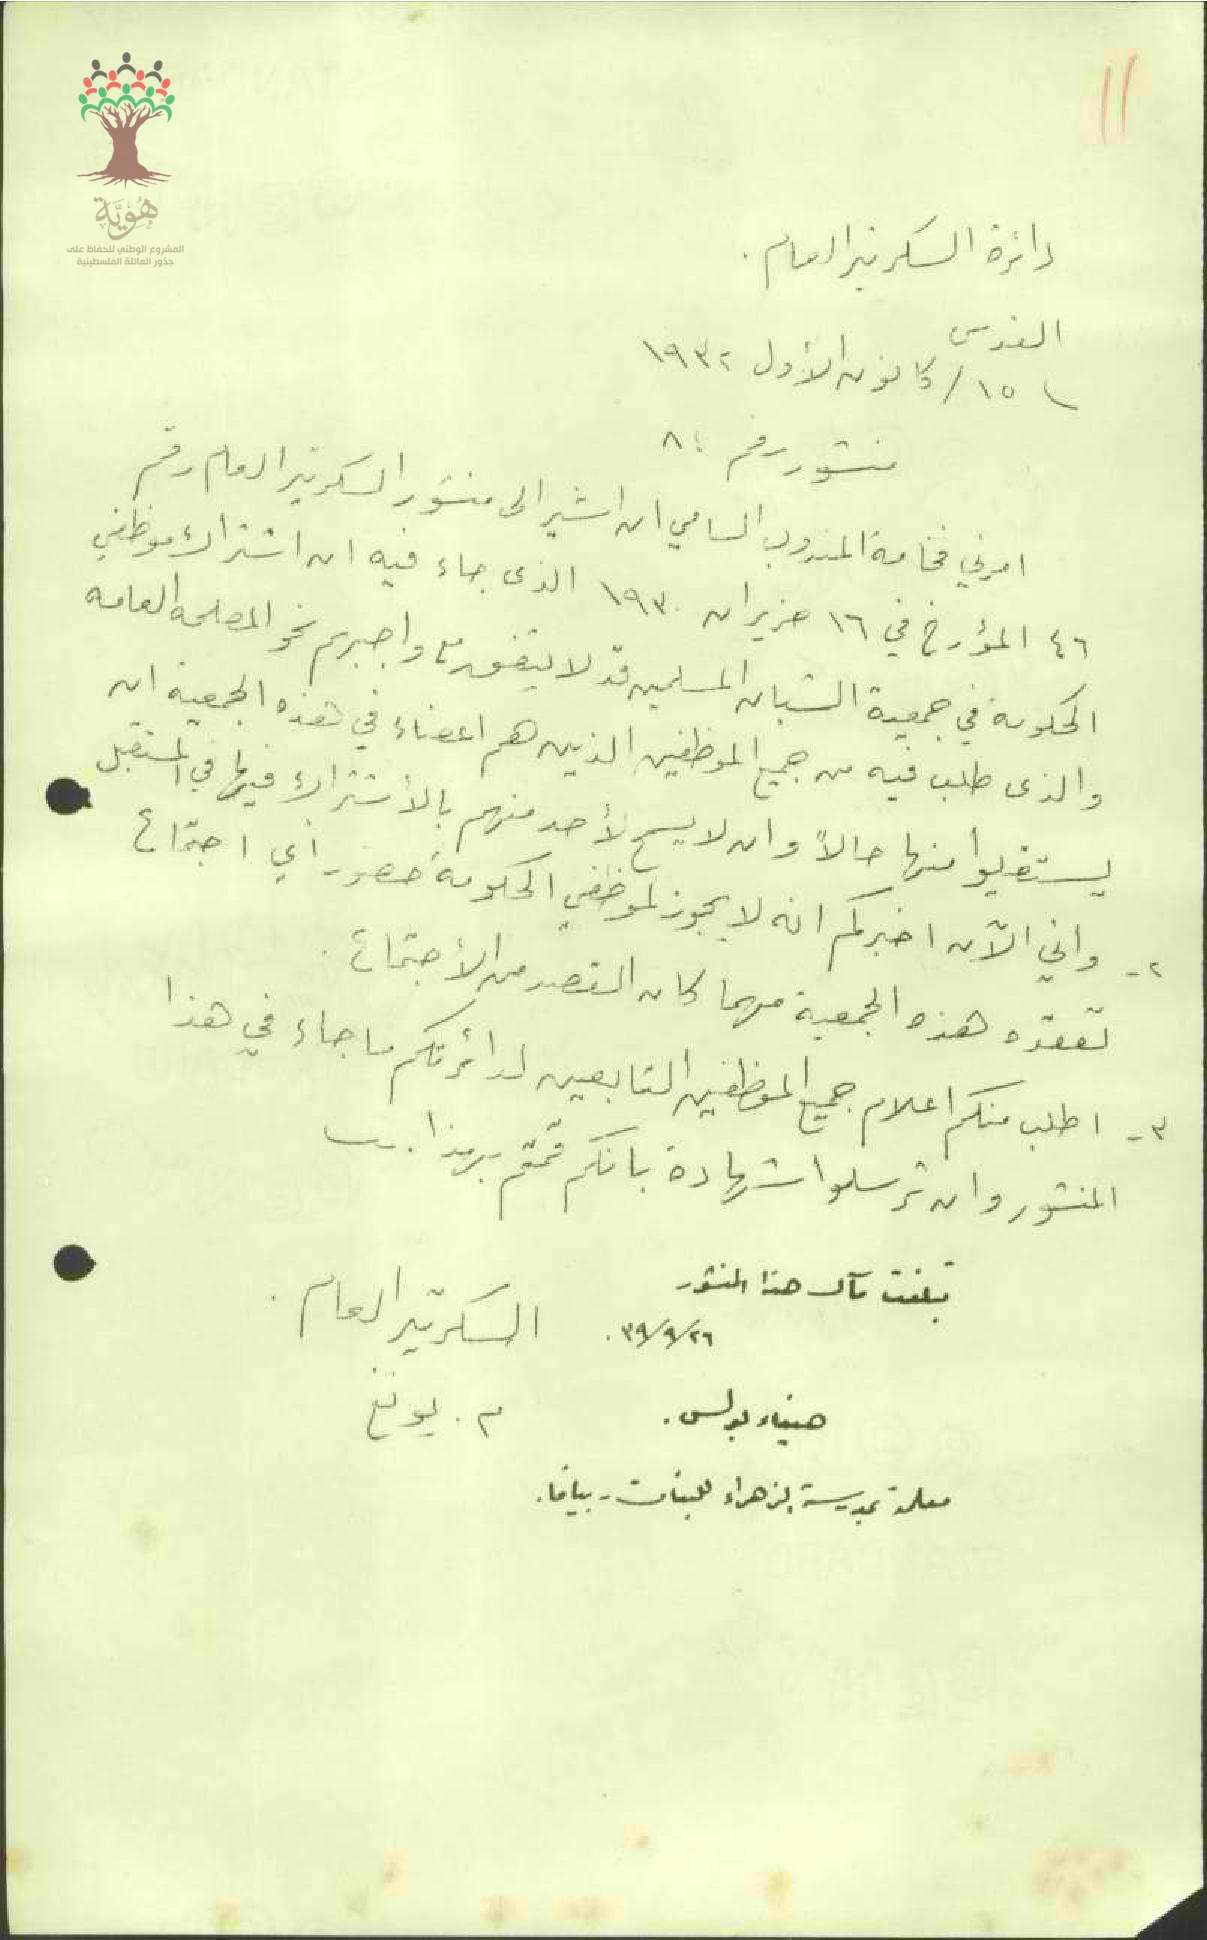 ١١
هُوِيَّة
المشروع الوطني للحفاظ على
جذور العائلة الفلسطينية
دائرة السكرتير العام.
القدس
١٥/ كانون الأول ١٩٣٢
منشور رقم ٨٤
امرني فخامة المندوب السامي ان اشير الى منشور السكرتير العام رقم
٤٦ المؤرخ في ١٦ حزيران ١٩٣٠ الذى جاء فيه ان اشتراك موظفي
الحكومة في جمعية الشبان المسلمين قد لا يتفق مع واجبهم نحو المصلحه العامه
والذى طلب فيه من جميع الموظفين الذين هم اعضاء في هذه الجمعية ان
يستقيلوا منها حالاً وان لا يسمح لأحد منهم بالأشتراك فيها في المستقبل
٢- واني الآن اخبركم انه لا يجوز لموظفي الحكومة حضور أي اجتماع
تعقده هذه الجمعية مهما كان القصد من الأجتماع.
٣- اطلب منكم اعلام جميع الموظفين التابعين لدائرتكم ما جاء في هذا
المنشور وان ترسلوا شهادة بانكم قمتم بهذا.
تبلغت مآل هذا المنشور
٣٩/٩/٢٦.
السكرتير العام.
هيفاء بولس.
م. يونغ
معلمة بمدرسة الزهراء للبنات - بيافا.